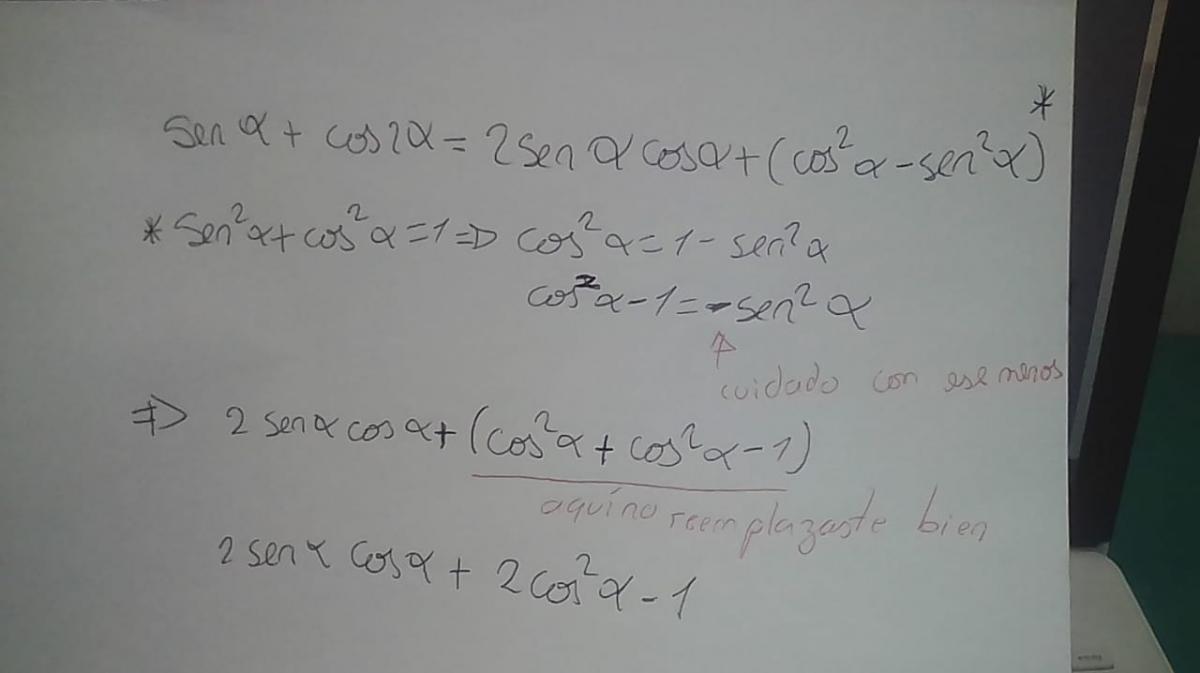 sen α + cos 2α = 2 sen α cos α + (cos² α - sen² α) *
* sen² α + cos² α = 1 => cos² α = 1 - sen² α
cos² α - 1 = - sen² α
↑
cuidado con ese menos
=> 2 sen α cos α + (cos² α + cos² α - 1)
aquí no reemplazaste bien
2 sen α cos α + 2 cos² α - 1